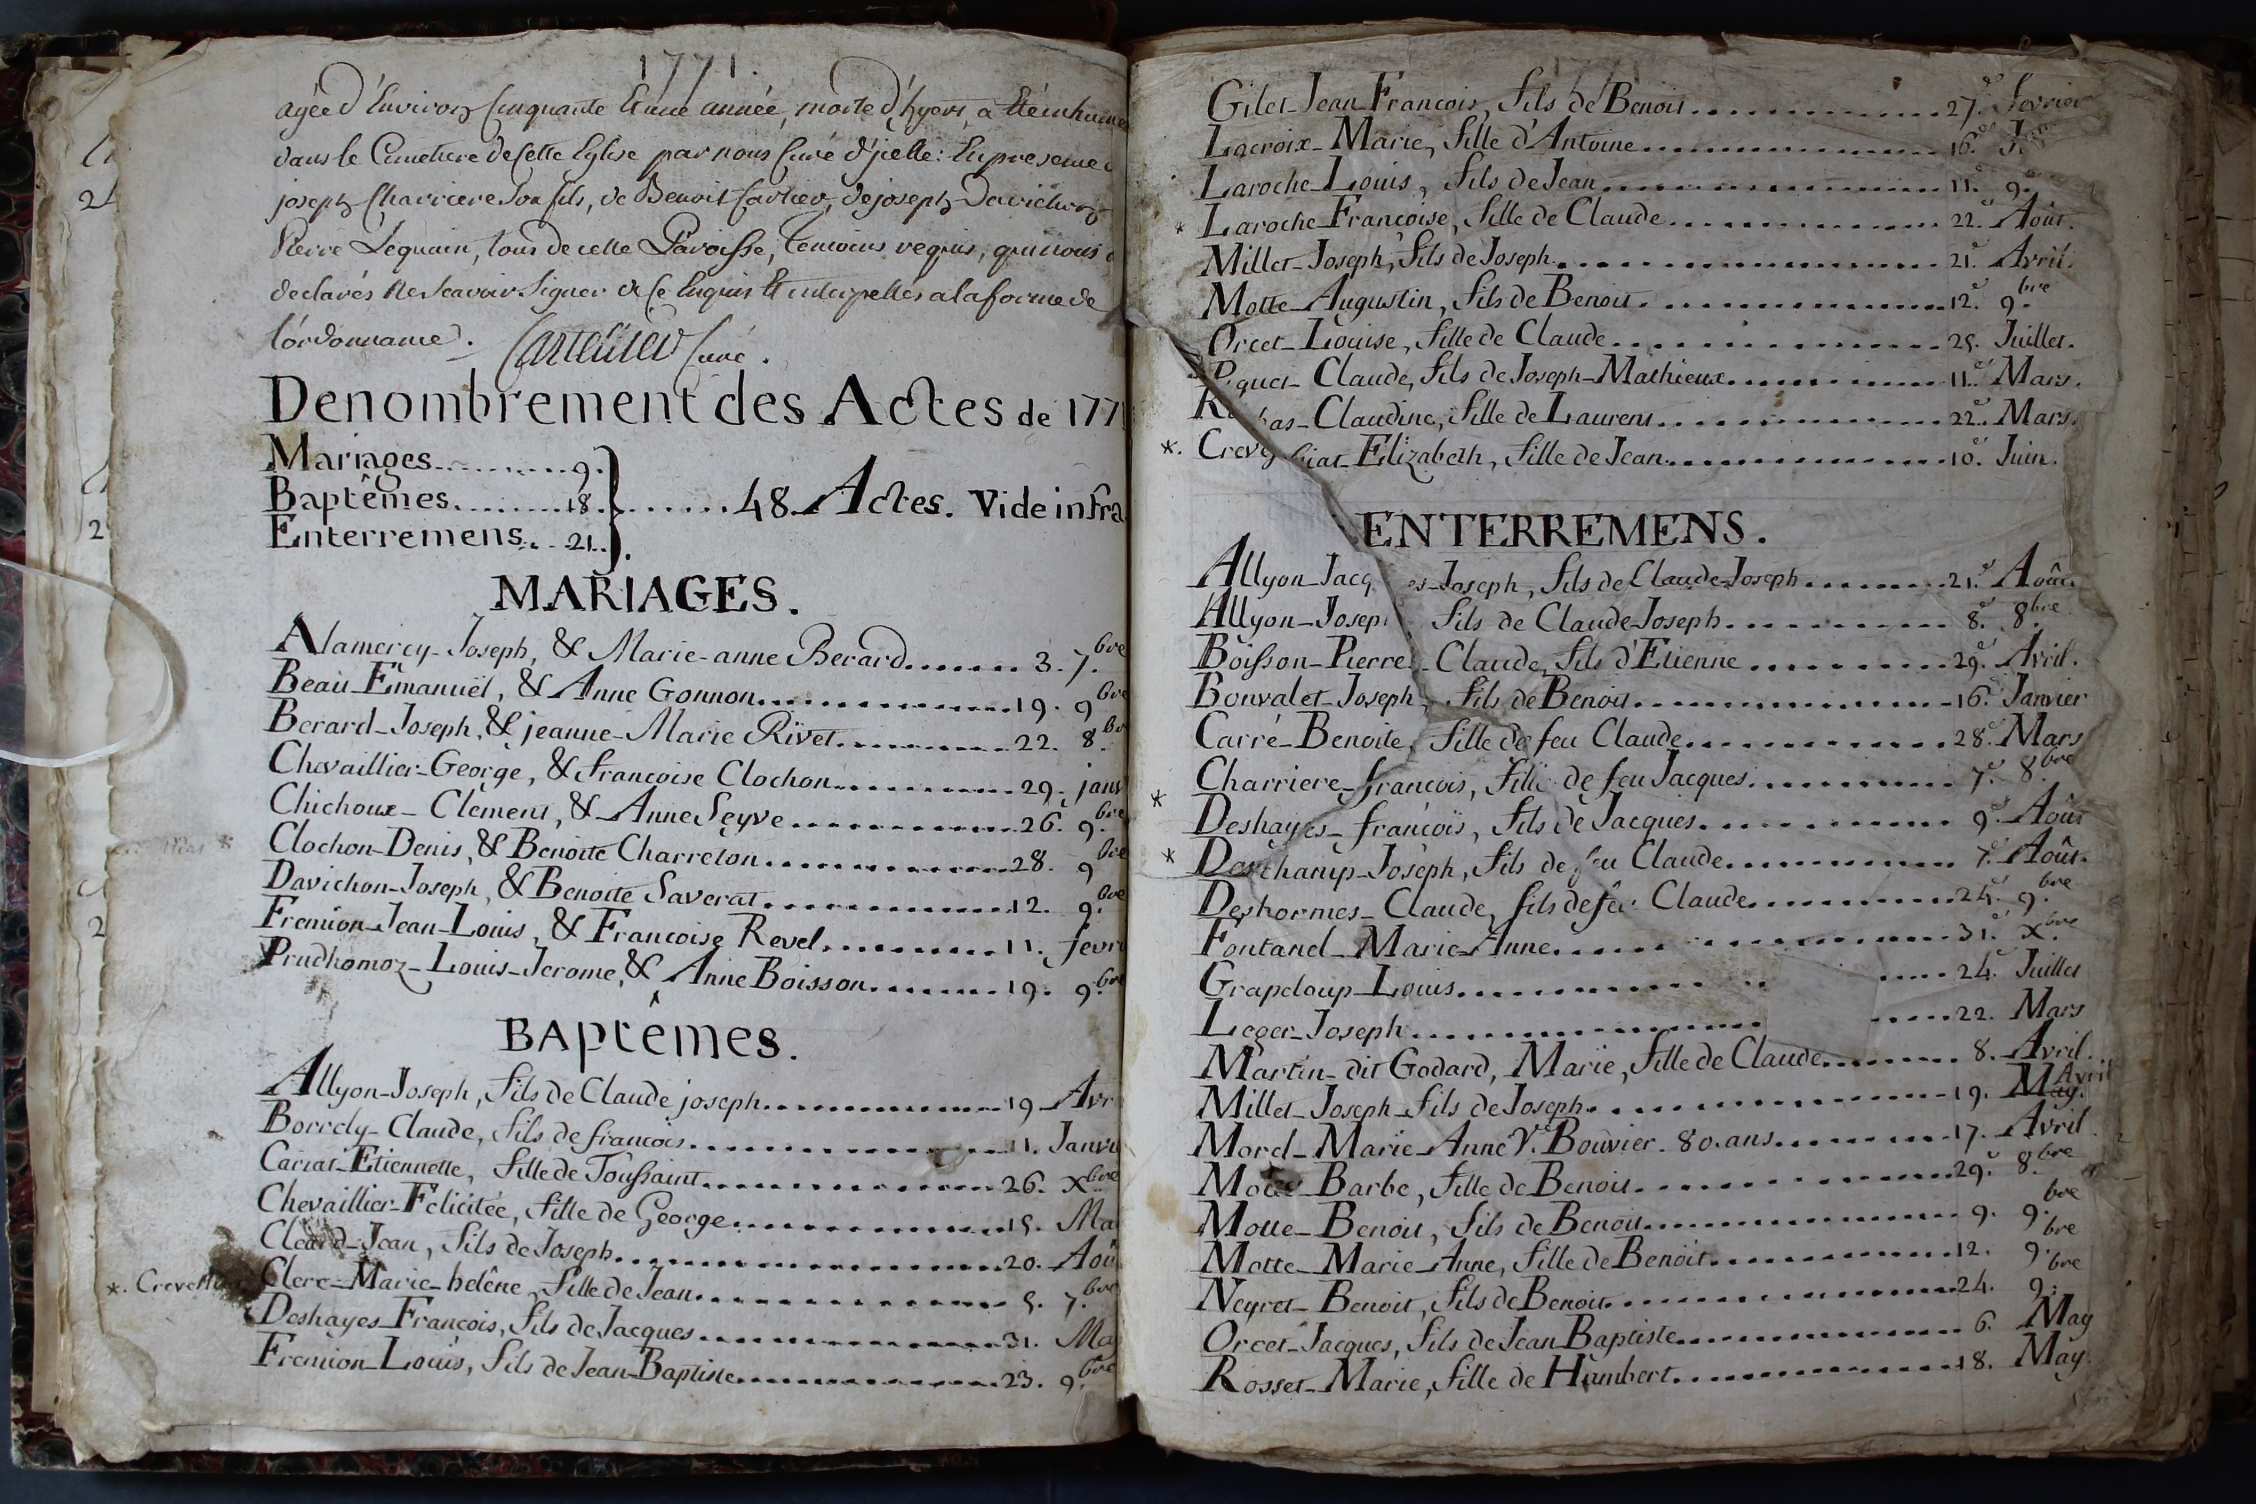 1771.
agée d'Environ Cinquante Et une année, morte d'hyers, a Eté inhumée
dans le Cimetiere de Cette Eglise par nous Curé d'jcelle: En presence
joseph Charriere Son fils, de Benoit Cartier, de joseph Davichon
Pierre Lequain, tous de cette Paroisse, temoins requis, qui nous
declarés ne Scavoir Signer de Ce Enquis Et interpellés a la forme de
l'ordonnance. Curé.
Denombrement des Actes de 1771
Mariages 9.
Baptêmes 18. 48 Actes. Vide infra
Enterremens 21.
MARIAGES.
Alamercy-Joseph, & Marie-anne Berard 3. 7.bre
Beau Emanuël, & Anne Gonnon 19. 9bre
Berard-Joseph, & jeanne-Marie Rivet 22. 8.
Chevaillier-George, & françoise Clochon 29. janv
Chichoux-Clement, & Anne Seyve 26. 9.bre
Clochon-Denis, & Benoite Charreton 28. 9bre
Davichon-Joseph, & Benoite Saverat 12. 9.bre
Fremion-Jean-Louis, & Françoise Revel 11. fevri
Prudhomoz-Louis-Jerome, & Anne Boisson 19. 9.bre
BAptêmes.
Allyon-Joseph, fils de Claude joseph 19 Avr
Borrely-Claude, fils de francois 11. Janvi
Cariat-Etiennette, fille de Toussaint 26. Xbre
Chevaillier-Felicitée, fille de George 15. Ma
Cleard-Jean, fils de Joseph 20. Aoû
*. Clerc-Marie-helêne, fille de Jean 5. 7.bre
Deshayes François, fils de Jacques 31. Ma
Fremion-Louis, fils de Jean-Baptiste 23. 9.bre
Gilet-Jean François, fils de Benoit 27.e fevrier
Lacroix-Marie, fille d'Antoine 16.e
Laroche-Louis, fils de Jean 11.e 9.
* Laroche Françoise, fille de Claude 22.e Août.
Millet-Joseph, fils de Joseph 21.e Avril.
Motte-Augustin, fils de Benoit 12.e 9.bre
Orcet-Louise, fille de Claude 25. Juillet.
Piquet-Claude, fils de Joseph-Mathieux 11.e Mars.
Claudine, fille de Laurent 22.e Mars.
*. Elizabeth, fille de Jean 10.e Juin.
ENTERREMENS.
Allyon-Jacques-Joseph, fils de Claude-Joseph 21.e Août
Allyon-Joseph fils de Claude-Joseph 8.e 8.bre
Boisson-Pierre-Claude, fils d'Etienne 29.e Avril.
Bonvalet-Joseph, fils de Benoit 16.e Janvier
Carré-Benoite, fille de feu Claude 28.e Mars
Charriere-françois, fille de feu Jacques 7.e 8.bre
* Deshayes-françois, fils de Jacques 9.e Août
* Deschamp-Joseph, fils de feu Claude 7.e Août.
Deshormes-Claude, fils de feu Claude 24.e 9.bre
Fontanel-Marie-Anne 31.e X.bre
Grapeloup-Louis 24.e Juillet
Leger-Joseph 22. Mars
Martin-dit Godard, Marie, fille de Claude 8. Avril.
Millet-Joseph-fils de Joseph 19. May. Avril
Morel-Marie-Anne V.e Bouvier. 80.ans 17. Avril
Motte-Barbe, fille de Benoit 29.e 8.bre
Motte-Benoit, fils de Benoit 9. 9.bre
Motte-Marie-Anne, fille de Benoit 12. 9.bre
Neyret-Benoit, fils de Benoit 24. 9.bre
Orcet-Jacques, fils de Jean Baptiste 6. May
Rosset-Marie, fille de Humbert 18. May.